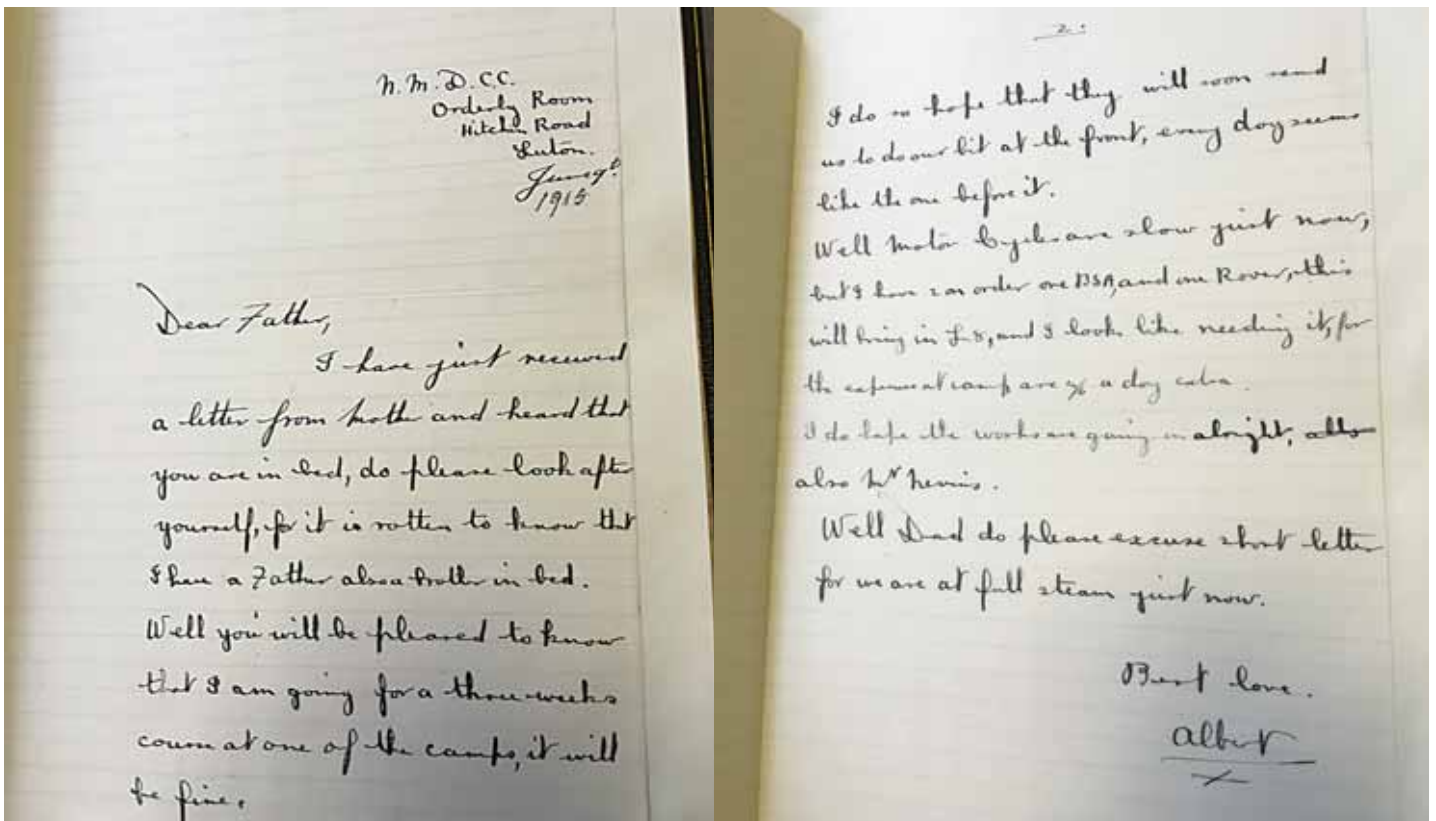 N.M.D.C.C.
Orderly Room
Hitchin Road
Luton.
June 9th
1915
Dear Father,
I have just received
a letter from Mother and heard that
you are in bed, do please look after
yourself, for it is rotten to know that
I have a Father also a brother in bed.
Well you will be pleased to know
that I am going for a three weeks
course at one of the camps, it will
be fine.
2.
I do so hope that they will soon send
us to do our bit at the front, every day seems
like the one before it.
Well Motor Cycles are slow just now,
but I have 2 on order one BSA, and one Rover, this
will bring in £8, and I looks like needing it, for
the expenses at camp are a day extra.
I do hope the works are going on alright,
also Mr Nevins.
Well Dad do please excuse short letter
for we are at full steam just now.
Best love.
Albert
X